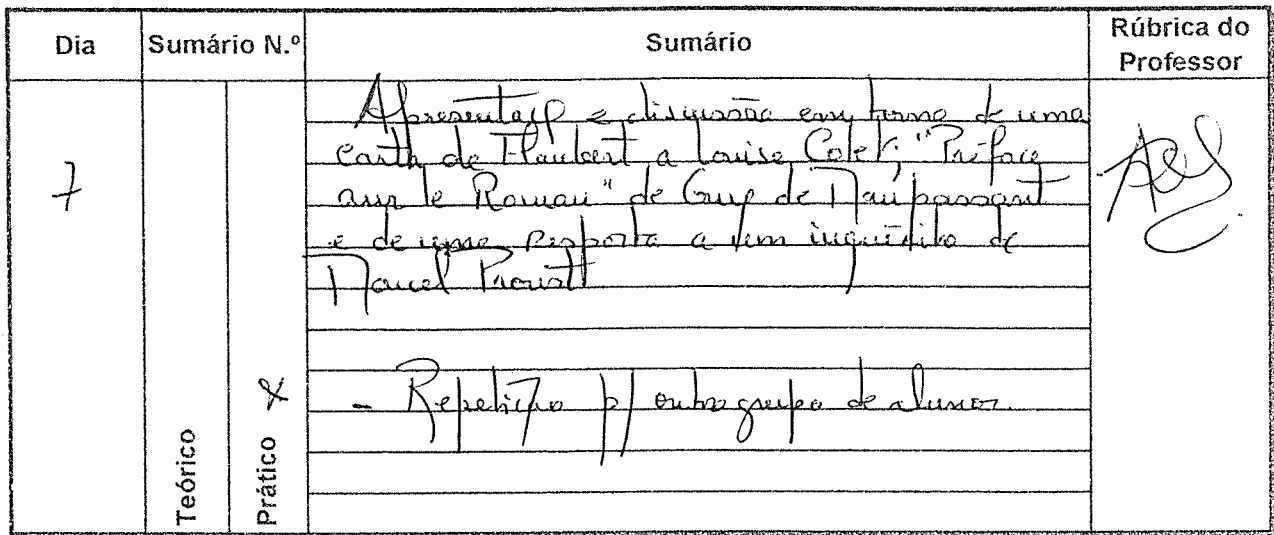 Dia Sumário N.º Sumário Rúbrica do Professor
7
Apresentação e discussão em torno de uma
carta de Flaubert a Louise Colet; "Préface
sur le Roman" de Guy de Maupassant
e de uma resposta a um inquérito de
Marcel Proust
- Repetição p/ outro grupo de alunos.
Teórico
Prático X